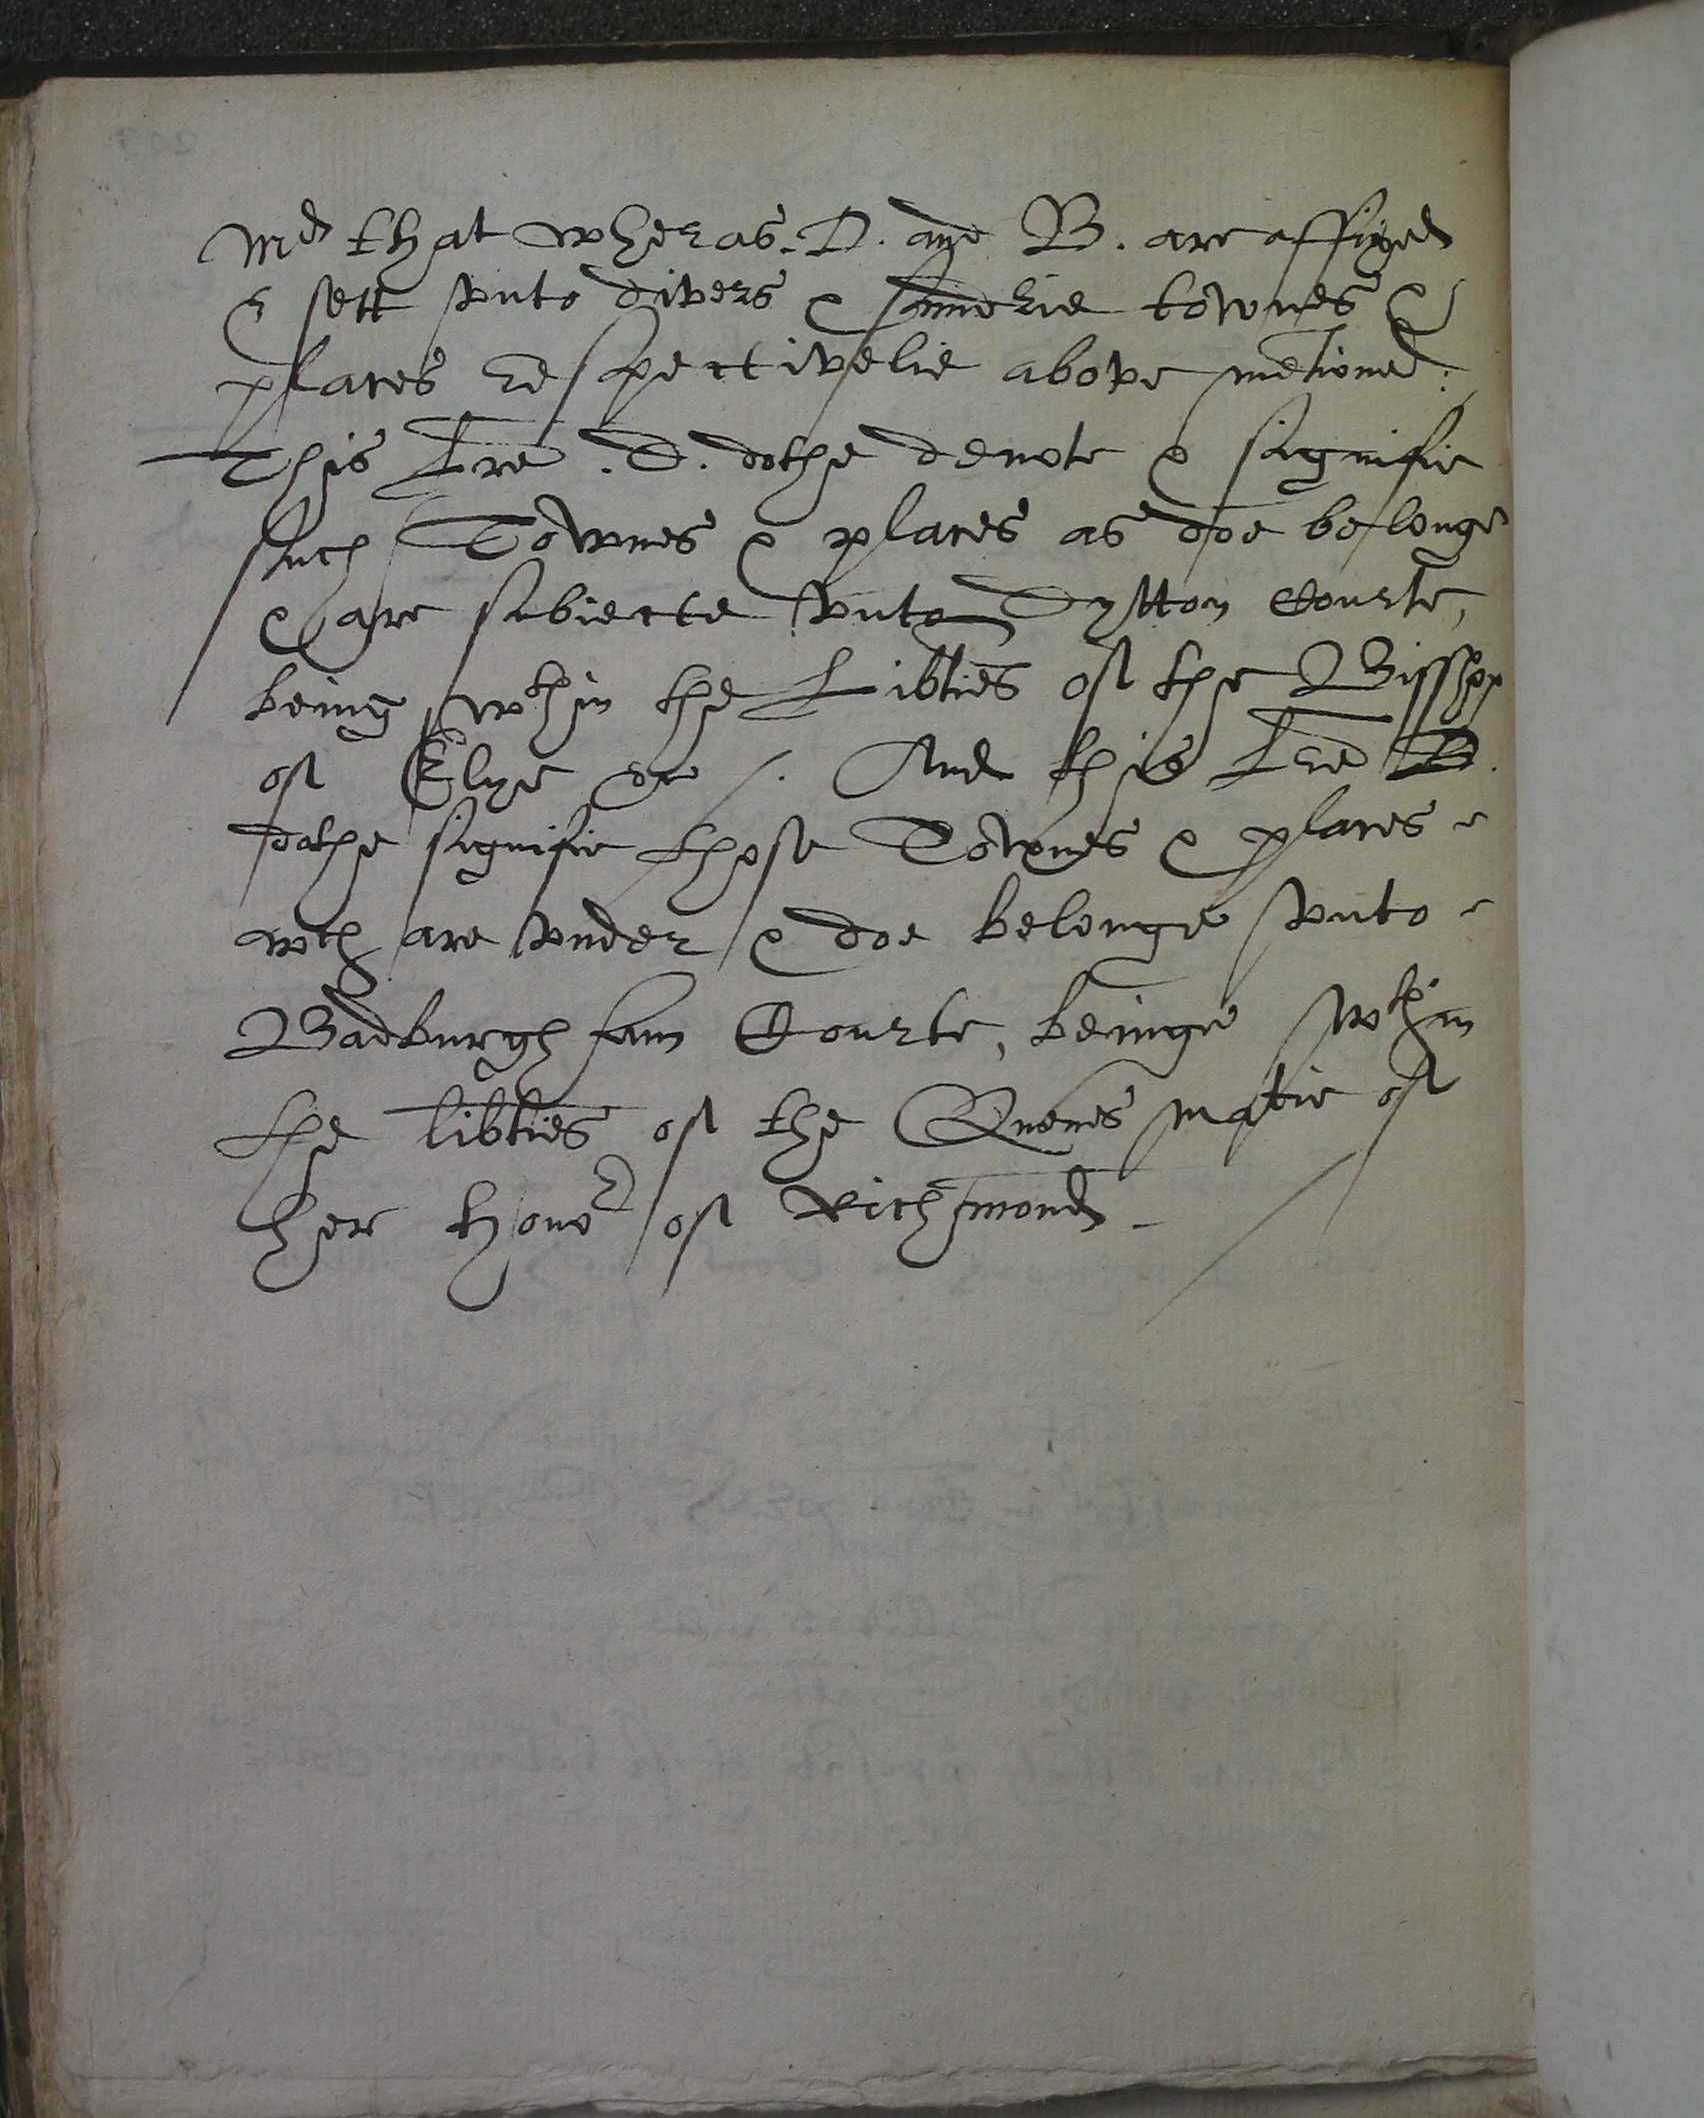 Md that wheras .D. and B. are affixed
& sett vnto divers & sundrie townes &
places respectivelie above mētioned:
This Lre .D. dothe denote & signifie
such Townes & places as doe belonge
& are subiecte vnto Dytton Courte,
being wthin the Libties of the Bisshop
of Elye &c /. And this Lre B.
dothe signifie those Townes & places
wch are vnder & doe belonge vnto
Badburgham Courte, beinge wthin
the libties of the Quenes matie of
her honor of Richmond